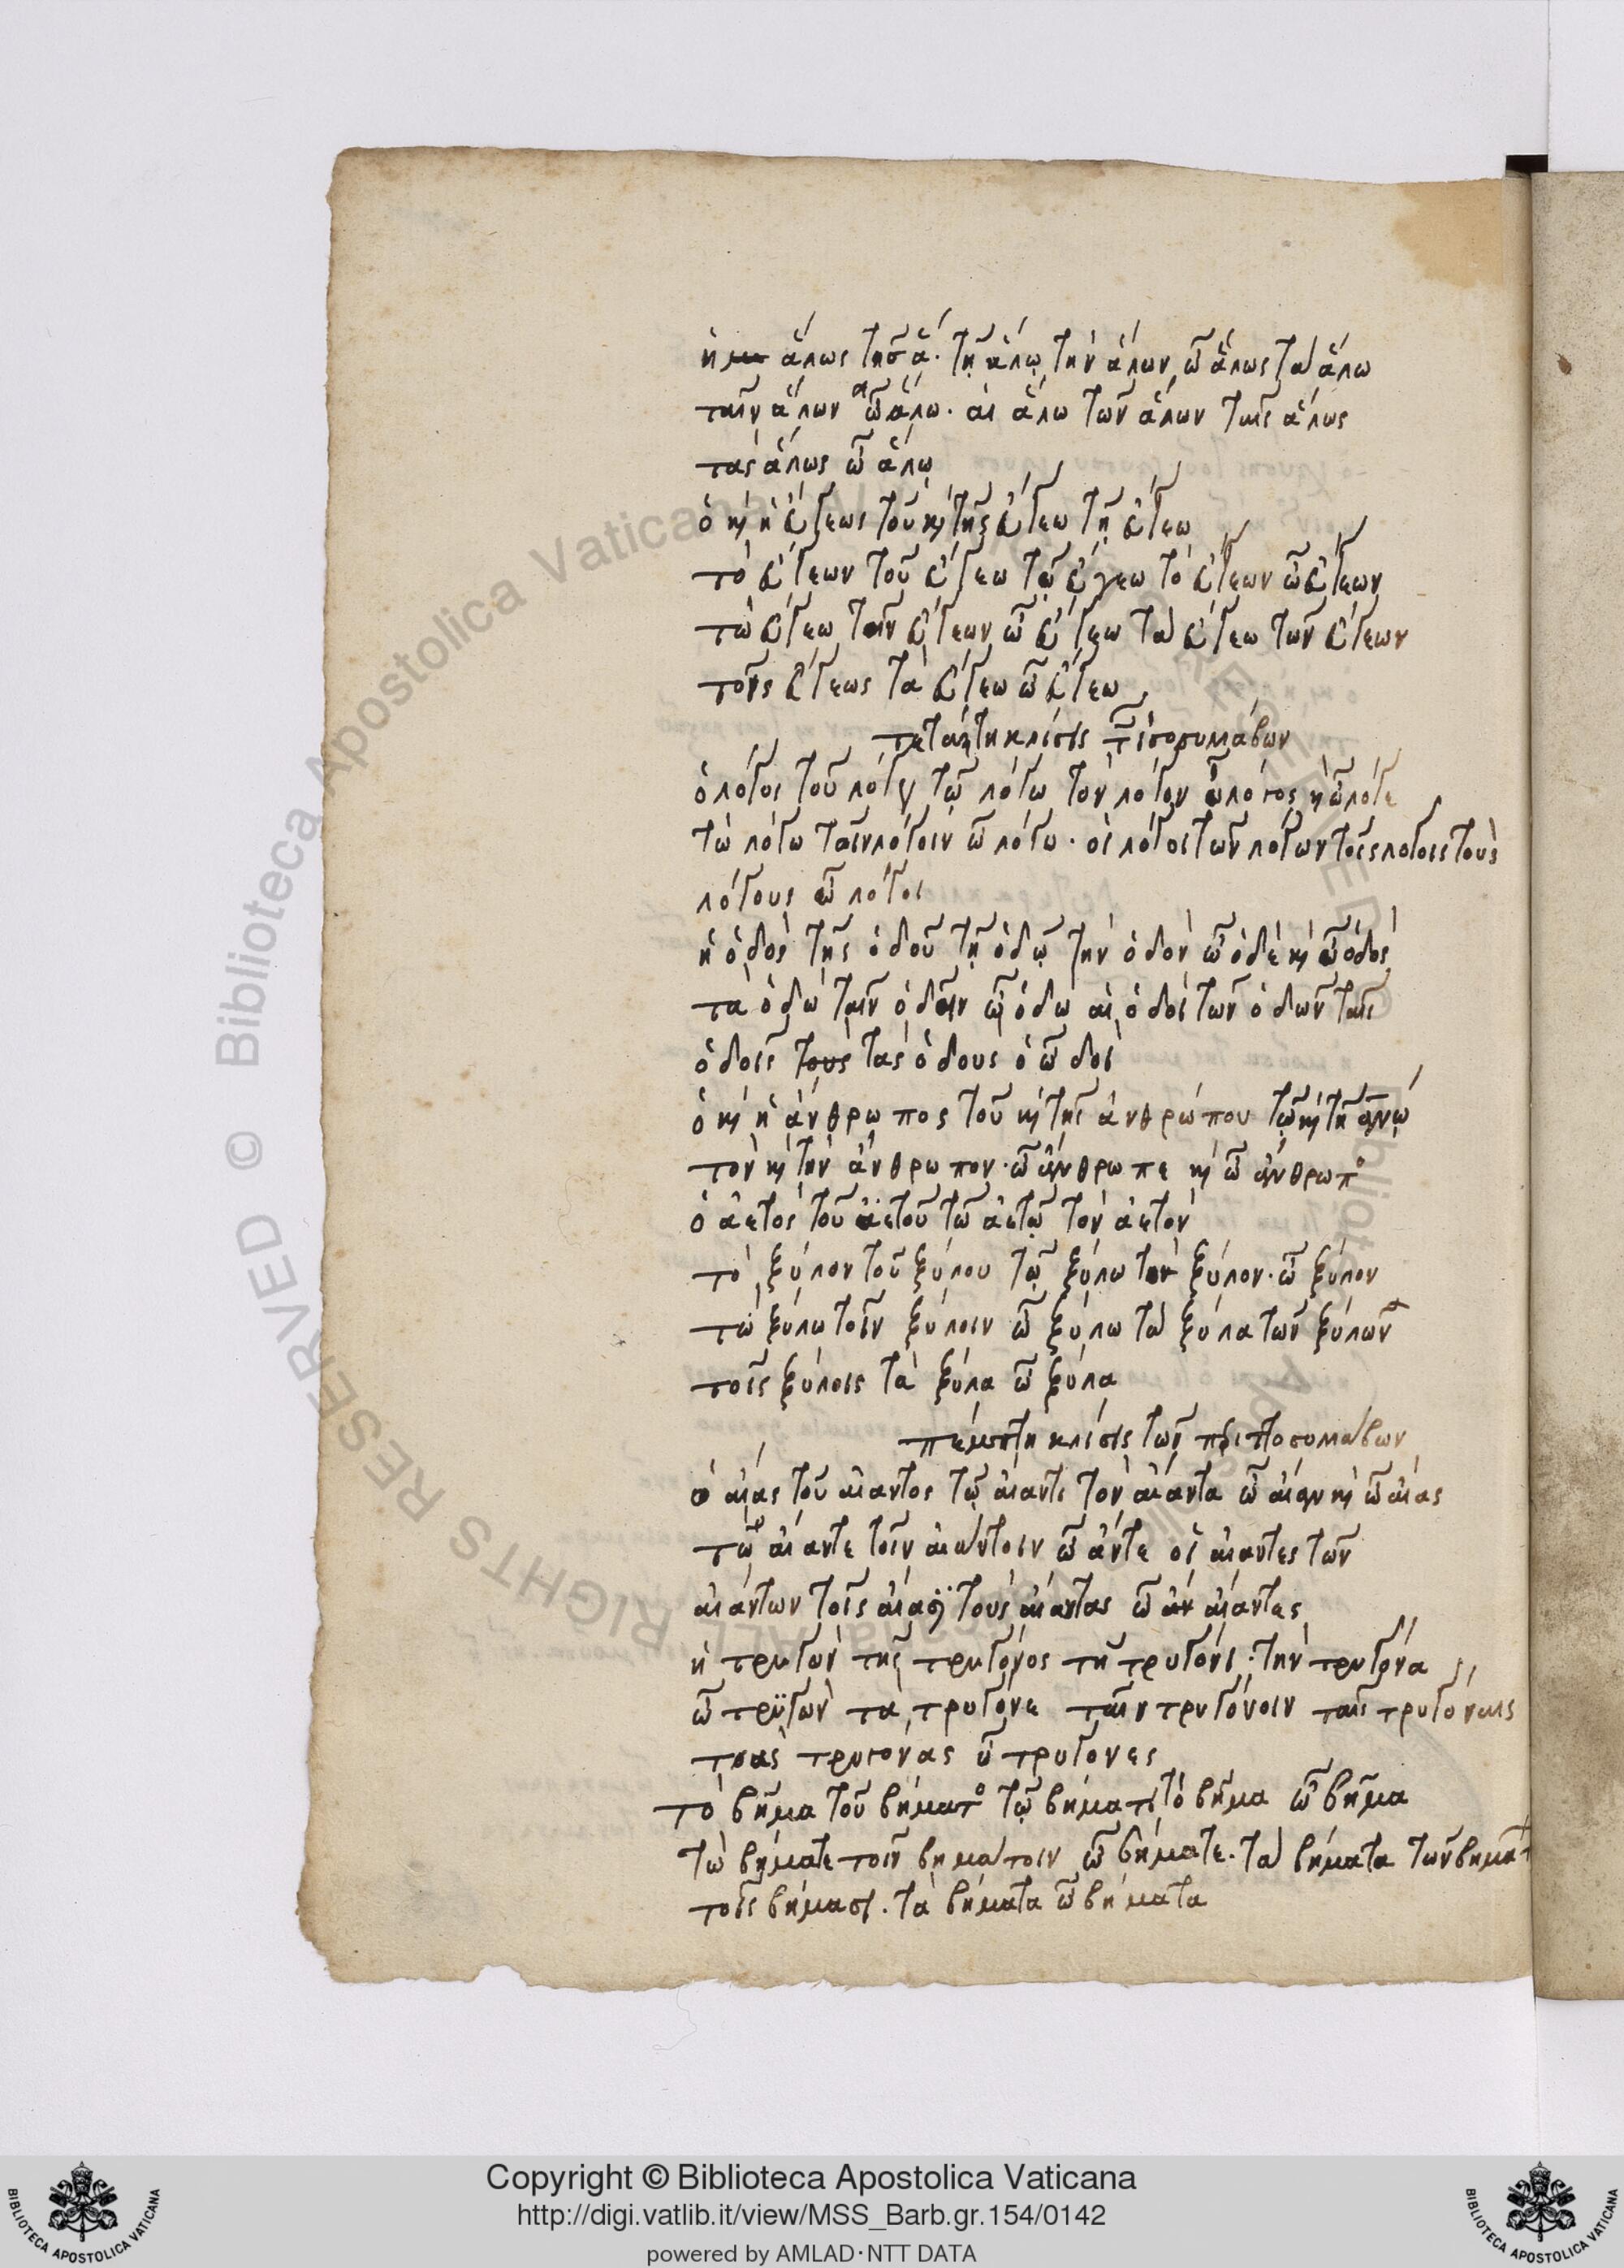 ἡ ἅλως τῆς ἅ. τῇ ἅλῳ τὴν ἅλων ὦ ἅλως τὰ ἅλω
ταῖν ἅλων ὦ ἅλω. αἱ ἅλω τῶν ἅλων ταῖς ἅλως
τὰς ἅλως ὦ ἅλῳ
τὸ εὔγεων τοῦ εὔγεω τῷ εὔγεω τὸ εὔγεων ὦ εὔγεων
τὼ εὔγεω ταῖν εὔγεων ὦ εὔγεω τὰ εὔγεω τῶν εὔγεων
τοῖς εὔγεως τὰ εὔγεω ὦ εὔγεω
τετάρτη κλίσις τῶν ἰσοσυλλάβων
ὁ λόγος τοῦ λόγου τῷ λόγω τὸν λόγον ὦ λόγος καὶ ὦ λόγε
τὼ λόγω ταῖν λόγοιν ὦ λόγω. οἱ λόγοι τῶν λόγων τοῖς λόγοις τοὺς
λόγους ὦ λόγοι
ἡ ὁδὸς τῆς ὁδοῦ τῇ ὁδῷ τὴν ὁδὸν ὦ ὁδὲ καὶ ὦ ὁδὸς
τὰ ὁδὼ ταῖν ὁδοῖν ὦ ὁδὼ αἱ ὁδοὶ τῶν ὁδῶν ταῖς
ὁδοῖς τοὺς τὰς ὁδοὺς ὁ ὦ δοὶ
ὁ καὶ ἡ ἄνθρωπος τοῦ καὶ τῆς ἀνθρώπου τῷ καὶ τῇ ἀνῳ
τὸν καὶ τὴν ἄνθρωπον. ὦ ἄνθρωπε καὶ ὦ ἄνθρωπο
ὁ ἀετὸς τοῦ ἀετοῦ τῷ ἀετῷ τὸν ἀετὸν
τὸ ξύλον τοῦ ξύλου τῷ ξύλω τὸν ξύλον. ὦ ξύλον
τὼ ξύλω τοῖν ξύλοιν ὦ ξύλω τὰ ξύλα τῶν ξύλων
τοῖς ξύλοις τὰ ξύλα ὦ ξύλα
πέμπτη κλίσις τῶν περιττοσυλλάβων
ὁ αἴας τοῦ αἴαντος τῷ αἴαντι τὸν αἴαντα ὦ αἶαν καὶ ὦ αἴας
τὼ αἴαντε τοῖν αἰάντοιν ὦ ἄντε οἱ αἴαντες τῶν
αἰάντων τοῖς αἴασϊ τοὺς αἴαντας ὦ ἀν αἴαντες
ἡ τρυγὼν τῆς τρυγόνος τῇ τρυγόνι. τὴν τρυγόνα
ὦ τρϋγὼν τὰ τρυγόνε ταῖν τρυγόνοιν ταῖς τρυγόναις
τὰς τρυγόνας ὦ τρυγόνες
τὸ βῆμα τοῦ βήματο τῷ βήματι τὸ βῆμα ὦ βῆμα
τὼ βήματε τοῖν βημάτοιν ὦ βήματε. τὰ βήματα τῶν βημάτ
τοῖς βήμασι. τὰ βήματα ὦ βήματα
Copyright © Biblioteca Apostolica Vaticana
http://digi.vatlib.it/view/MSS_Barb.gr.154/0142
powered by AMLAD·NTT DATA
BIBLIOTECA APOSTOLICA VATICANA
BIBLIOTECA APOSTOLICA VATICANA